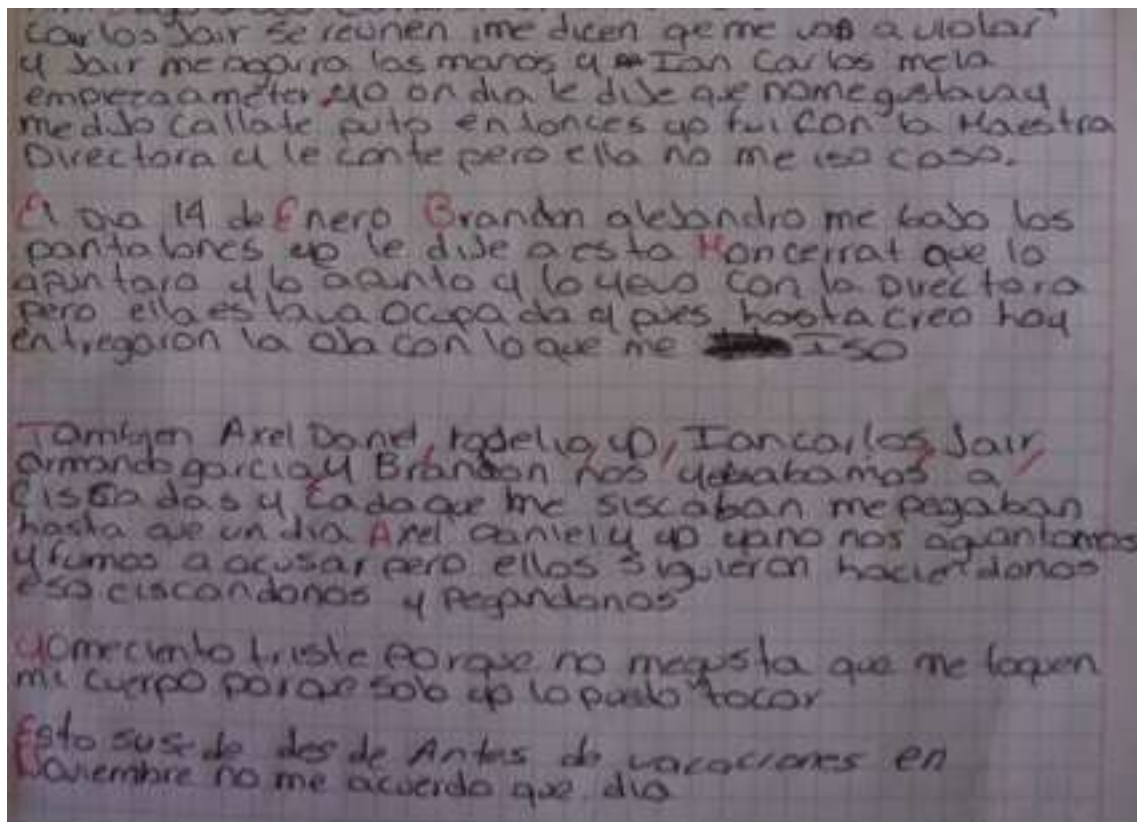 Carlos Jair se reunen ,me dicen qe me van a violar
y Jair me agarra las manos y Ian Carlos mela
empieza a meter yo on dia le dije que nomegustava y
medijo callate puto entonces yo fui con la Maestra
Directora y le conte pero ella no me iso caso.
El Dia 14 de Enero Brandon alejandro me bajo los
pantalones yo le dije a esta Moncerrat que lo
apuntara y lo apunto y lo yevo con la Directora
pero ella estava ocupada y pues hasta creo hoy
entregaron la oja con lo que me ISO
Tambien Axel Daniel, rogelio, yo, Iancarlos, Jair,
armando garcia y Brandon nos a
Ciscadas y Cada que me siscaban me pegaban
hasta que un dia Axel Daniel y yo yano nos aguantamos
y fumos a acusar pero ellos siguieron haciendonos
eso ciscandonos y pegandonos
yo meciento triste Porque no megusta que me toquen
mi cuerpo porque solo yo lo puedo tocar
Esto susede des de Antes de vacaciones en
Noviembre no me acuerdo que dia